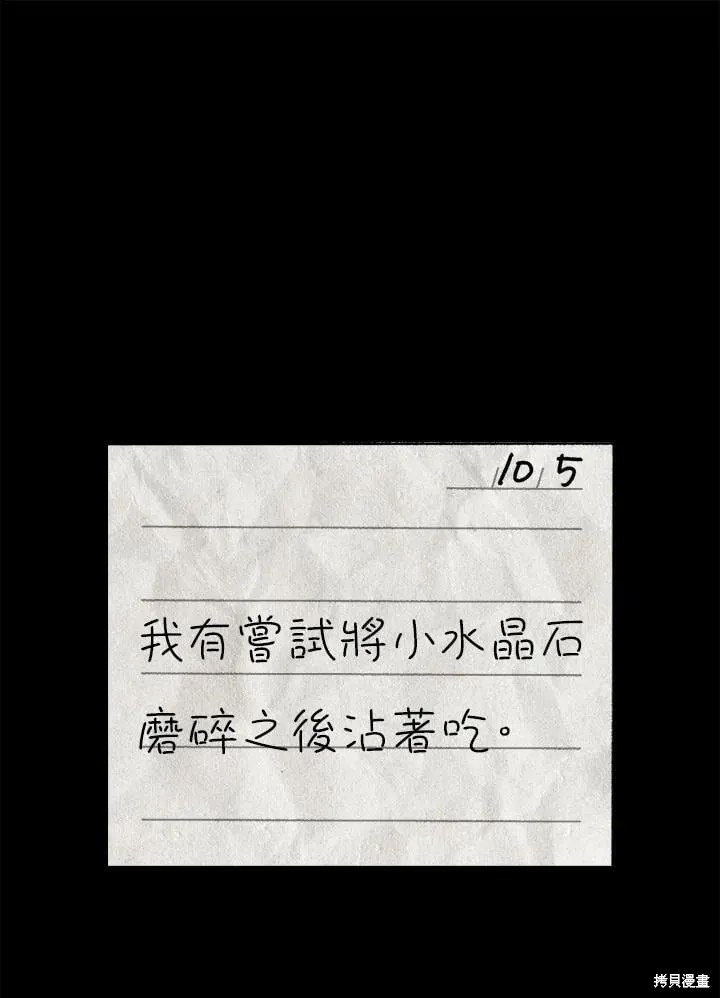 /10/ 5
我有嘗試將小水晶石
磨碎之後沾著吃。
拷貝漫畫